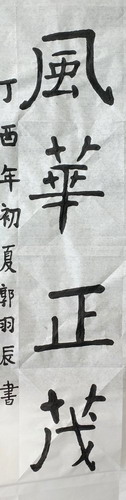 風華正茂
丁酉年初夏郭羽辰書